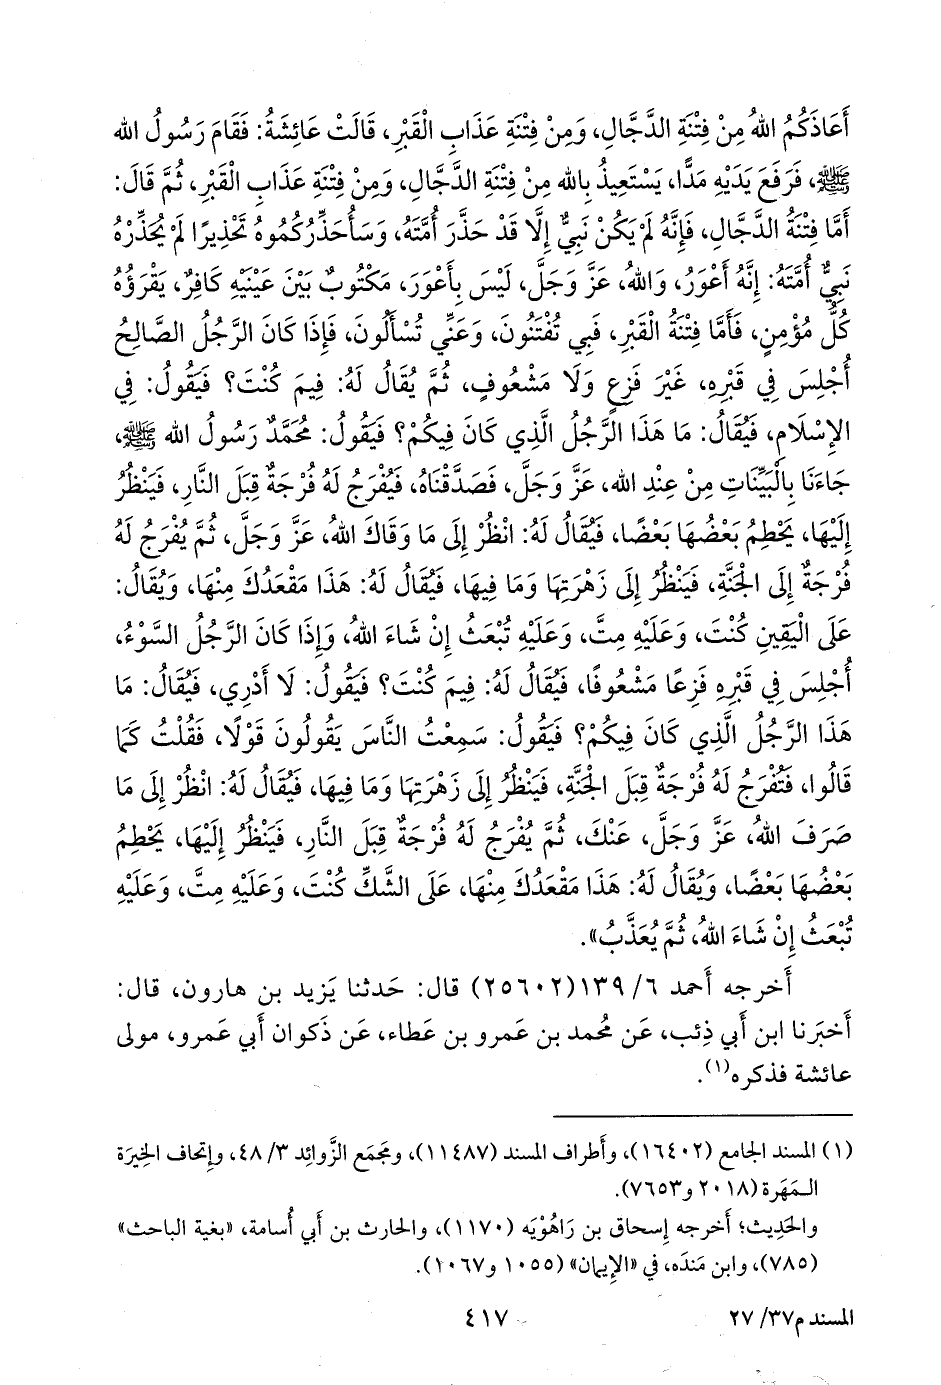 أَعَاذَكُمُ اللهُ مِنْ فِتْنَةِ الدَّجَّالِ، وَمِنْ فِتْنَةِ عَذَابِ الْقَبْرِ، قَالَتْ عَائِشَةُ: فَقَامَ رَسُولُ الله
ﷺ، فَرَفَعَ يَدَيْهِ مَدًّا، يَسْتَعِيذُ بِالله مِنْ فِتْنَةِ الدَّجَّالِ، وَمِنْ فِتْنَةِ عَذَابِ الْقَبْرِ، ثُمَّ قَالَ:
أَمَّا فِتْنَةُ الدَّجَّالِ، فَإِنَّهُ لَمْ يَكُنْ نَبِيٌّ إِلَّا قَدْ حَذَّرَ أُمَّتَهُ، وَسَأُحَذِّرُكُمُوهُ تَحْذِيرًا لَمْ يُحَذِّرْهُ
نَبِيٌّ أُمَّتَهُ: إِنَّهُ أَعْوَرُ، وَاللهُ، عَزَّ وَجَلَّ، لَيْسَ بِأَعْوَرَ، مَكْتُوبٌ بَيْنَ عَيْنَيْهِ كَافِرٌ، يَقْرَؤُهُ
كُلُّ مُؤْمِنٍ، فَأَمَّا فِتْنَةُ الْقَبْرِ، فَبِي تُفْتَنُونَ، وَعَنِّي تُسْأَلُونَ، فَإِذَا كَانَ الرَّجُلُ الصَّالِحُ
أُجْلِسَ فِي قَبْرِهِ، غَيْرَ فَزِعٍ وَلَا مَشْعُوفٍ، ثُمَّ يُقَالُ لَهُ: فِيمَ كُنْتَ؟ فَيَقُولُ: فِي
الإِسْلَامِ، فَيُقَالُ: مَا هَذَا الرَّجُلُ الَّذِي كَانَ فِيكُمْ؟ فَيَقُولُ: مُحَمَّدٌ رَسُولُ الله ﷺ،
جَاءَنَا بِالْبَيِّنَاتِ مِنْ عِنْدِ الله، عَزَّ وَجَلَّ، فَصَدَّقْنَاهُ، فَيُفْرَجُ لَهُ فُرْجَةٌ قِبَلَ النَّارِ، فَيَنْظُرُ
إِلَيْهَا، يَحْطِمُ بَعْضُهَا بَعْضًا، فَيُقَالُ لَهُ: انْظُرْ إِلَى مَا وَقَاكَ اللهُ، عَزَّ وَجَلَّ، ثُمَّ يُفْرَجُ لَهُ
فُرْجَةٌ إِلَى الْجَنَّةِ، فَيَنْظُرُ إِلَى زَهْرَتِهَا وَمَا فِيهَا، فَيُقَالُ لَهُ: هَذَا مَقْعَدُكَ مِنْهَا، وَيُقَالُ:
عَلَى الْيَقِينِ كُنْتَ، وَعَلَيْهِ مِتَّ، وَعَلَيْهِ تُبْعَثُ إِنْ شَاءَ اللهُ، وَإِذَا كَانَ الرَّجُلُ السَّوْءُ،
أُجْلِسَ فِي قَبْرِهِ فَزِعًا مَشْعُوفًا، فَيُقَالُ لَهُ: فِيمَ كُنْتَ؟ فَيَقُولُ: لَا أَدْرِي، فَيُقَالُ: مَا
هَذَا الرَّجُلُ الَّذِي كَانَ فِيكُمْ؟ فَيَقُولُ: سَمِعْتُ النَّاسَ يَقُولُونَ قَوْلًا، فَقُلْتُ كَمَا
قَالُوا، فَتُفْرَجُ لَهُ فُرْجَةٌ قِبَلَ الْجَنَّةِ، فَيَنْظُرُ إِلَى زَهْرَتِهَا وَمَا فِيهَا، فَيُقَالُ لَهُ: انْظُرْ إِلَى مَا
صَرَفَ اللهُ، عَزَّ وَجَلَّ، عَنْكَ، ثُمَّ يُفْرَجُ لَهُ فُرْجَةٌ قِبَلَ النَّارِ، فَيَنْظُرُ إِلَيْهَا، يَحْطِمُ
بَعْضُهَا بَعْضًا، وَيُقَالُ لَهُ: هَذَا مَقْعَدُكَ مِنْهَا، عَلَى الشَّكِّ كُنْتَ، وَعَلَيْهِ مِتَّ، وَعَلَيْهِ
تُبْعَثُ إِنْ شَاءَ اللهُ، ثُمَّ يُعَذَّبُ».
أَخرجه أَحمد ٦/ ١٣٩(٢٥٦٠٢) قال: حَدثنا يَزيد بن هارون، قال:
أَخبَرنا ابن أَبي ذِئب، عَن مُحمد بن عَمرو بن عَطاء، عَن ذَكوان أَبي عَمرو، مولى
عائشة فذكره(١).
(١) المسند الجامع (١٦٤٠٢)، وأَطراف المسند (١١٤٨٧)، ومَجمَع الزَّوائِد ٣/ ٤٨، وإِتحاف الخِيرَة
المَهَرة (٢٠١٨ و٧٦٥٣).
والحَدِيث؛ أَخرجه إِسحاق بن رَاهُوْيَه (١١٧٠)، والحارث بن أَبي أُسامة، «بغية الباحث»
(٧٨٥)، وابن مَندَه، في «الإِيمان» (١٠٥٥ و١٠٦٧).
المسند م٣٧/ ٢٧
٤١٧